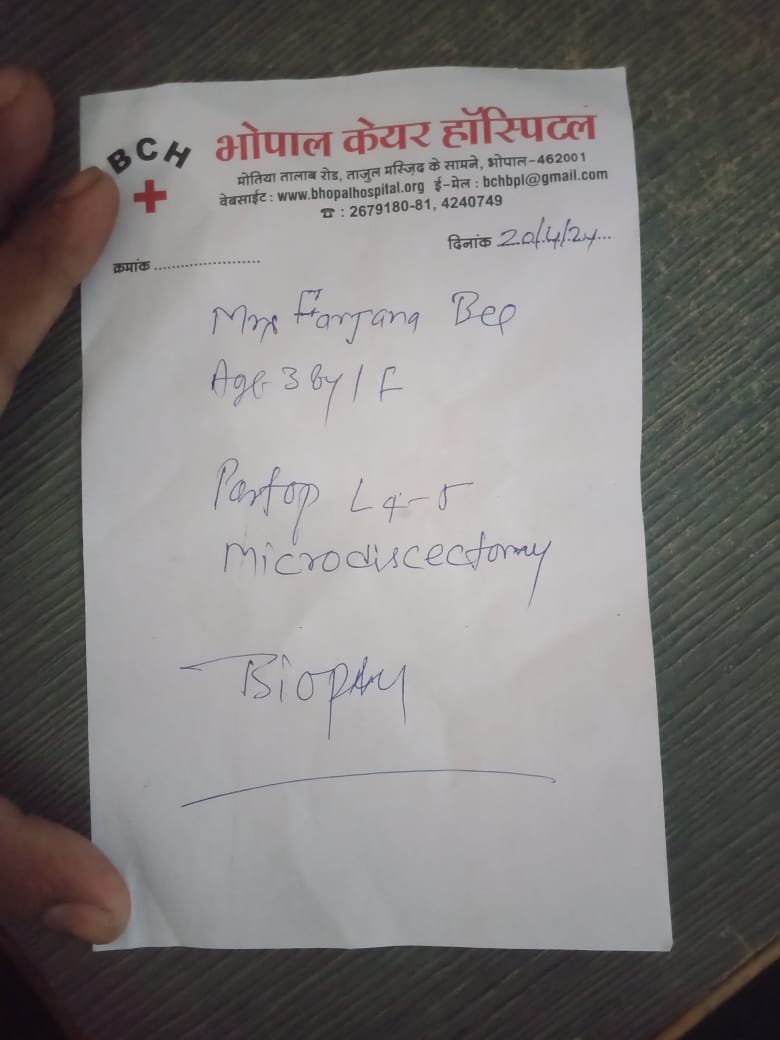 BCH
भोपाल केयर हॉस्पिटल
मोतिया तालाब रोड, ताजुल मस्जिद के सामने, भोपाल-462001
वेबसाईट : www.bhopalhospital.org ई-मेल : bchbpl@gmail.com
☎ : 2679180-81, 4240749
दिनांक 20/4/24
क्रमांक
Mrs Farjana Bee
Age 36y/F
Postop L4-5
Microdiscectomy
Biopsy